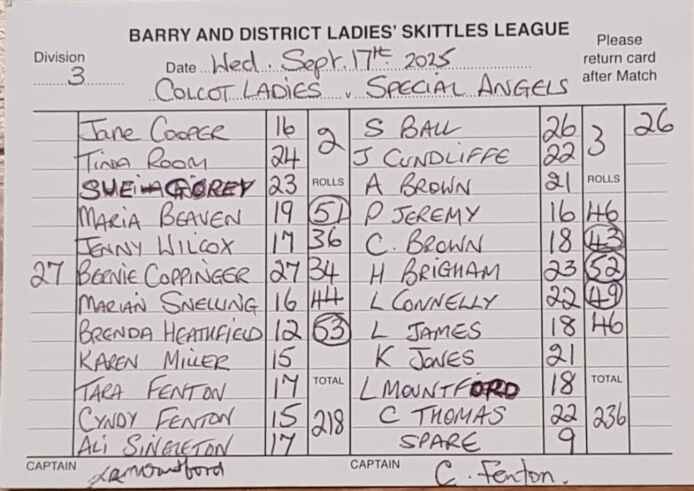 BARRY AND DISTRICT LADIES' SKITTLES LEAGUE
Division 3 Date Wed. Sept. 17th 2025 Please return card after Match
COLCOT LADIES v SPECIAL ANGELS
Jane COOPER 16 2 S BALL 26 3 26
TINA ROOM 24 J CUNDLIFFE 22
SHEILA COREY 23 ROLLS A BROWN 21 ROLLS
MARIA BEAVEN 19 51 P JEREMY 16 46
JENNY WILCOX 17 36 C. BROWN 18 43
27 BERNIE COPPINGER 27 34 H BRIGHAM 23 52
MARIAN SNELLING 16 44 L CONNELLY 22 49
BRENDA HEATHFIELD 12 53 L JAMES 18 46
KAREN MILLER 15 K JONES 21
TARA FENTON 17 TOTAL L MOUNTFORD 18 TOTAL
CYNDY FENTON 15 218 C THOMAS 22 236
ALI SINGLETON 17 SPARE 9
CAPTAIN CAPTAIN C. Fenton.